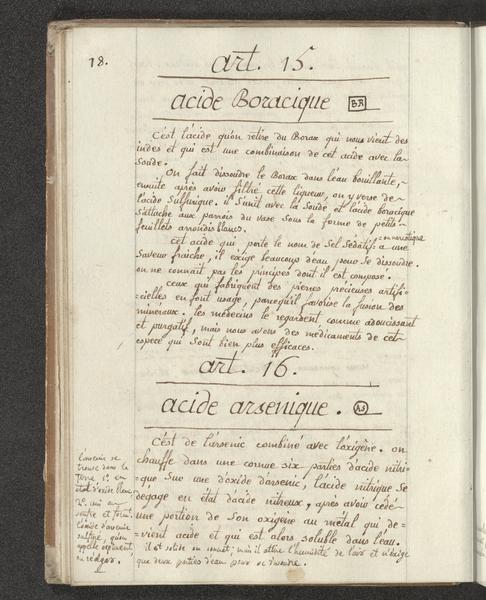 18.
art. 15.
acide Boracique BR
C'est l'acide qu'on retire du Borax qui nous vient des
indes et qui est une combinaison de cet acide avec la
Soude.
On fait dissoudre le Borax dans l'eau bouillante,
ensuite après avoir filtré cette liqueur, on y verse de
l'acide Sulfurique. il S'unit avec la Soude et l'acide boracique
S'attache aux parois du vase Sous la forme de petits
feuillets arrondis blancs.
Cet acide qui porte le nom de Sel Sédatif ou narcotique a une
Saveur fraiche, il exige beaucoup d'eau pour Se dissoudre.
on ne connait pas les principes dont il est composé.
Ceux qui fabriquent des pierres précieuses artifi-
=cielles en font usage, parcequ'il favorise la fusion des
minéraux. les médecins le regardent comme adoucissant
et purgatif, mais nous avons des médicaments de cet-
espece qui Sont bien plus efficaces.
art. 16.
acide arsenique. AS
C'est de l'arsenic combiné avec l'oxigène. on
chauffe dans une cornue six parties d'acide nitri-
=que Sur une d'oxide d'arsenic, l'acide nitrique Se
dégage en état d'acide nitreux, après avoir cédé
une portion de Son oxigène au métal qui de-
=vient acide et qui est alors soluble dans l'eau.
il est solide ou concret; mais il attire l'humidité de l'air et n'exige
que deux parties d'eau pour se dissoudre.
L'arsenic se
trouve dans la
terre 1°. en
état d'oxide blanc
2°. uni au
soufre et formt.
l'oxide d'arsenic
sulfuré, qu'on
appelle orpiment
ou réalgar.